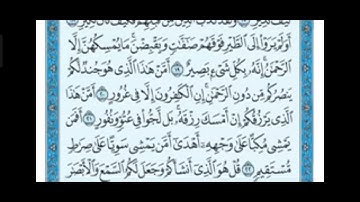 أَوَلَمْ يَرَوْا۟ إِلَى ٱلطَّيْرِ فَوْقَهُمْ صَـٰٓفَّـٰتٍ وَيَقْبِضْنَ ۚ مَا يُمْسِكُهُنَّ إِلَّا
ٱلرَّحْمَـٰنُ ۚ إِنَّهُۥ بِكُلِّ شَىْءٍۭ بَصِيرٌ ١٩ أَمَّنْ هَـٰذَا ٱلَّذِى هُوَ جُندٌ لَّكُمْ
يَنصُرُكُم مِّن دُونِ ٱلرَّحْمَـٰنِ ۚ إِنِ ٱلْكَـٰفِرُونَ إِلَّا فِى غُرُورٍ ٢٠ أَمَّنْ هَـٰذَا
ٱلَّذِى يَرْزُقُكُمْ إِنْ أَمْسَكَ رِزْقَهُۥ ۚ بَل لَّجُّوا۟ فِى عُتُوٍّ وَنُفُورٍ ٢١ أَفَمَن
يَمْشِى مُكِبًّا عَلَىٰ وَجْهِهِۦٓ أَهْدَىٰٓ أَمَّن يَمْشِى سَوِيًّا عَلَىٰ صِرَٰطٍ
مُّسْتَقِيمٍ ٢٢ قُلْ هُوَ ٱلَّذِىٓ أَنشَأَكُمْ وَجَعَلَ لَكُمُ ٱلسَّمْعَ وَٱلْأَبْصَـٰرَ